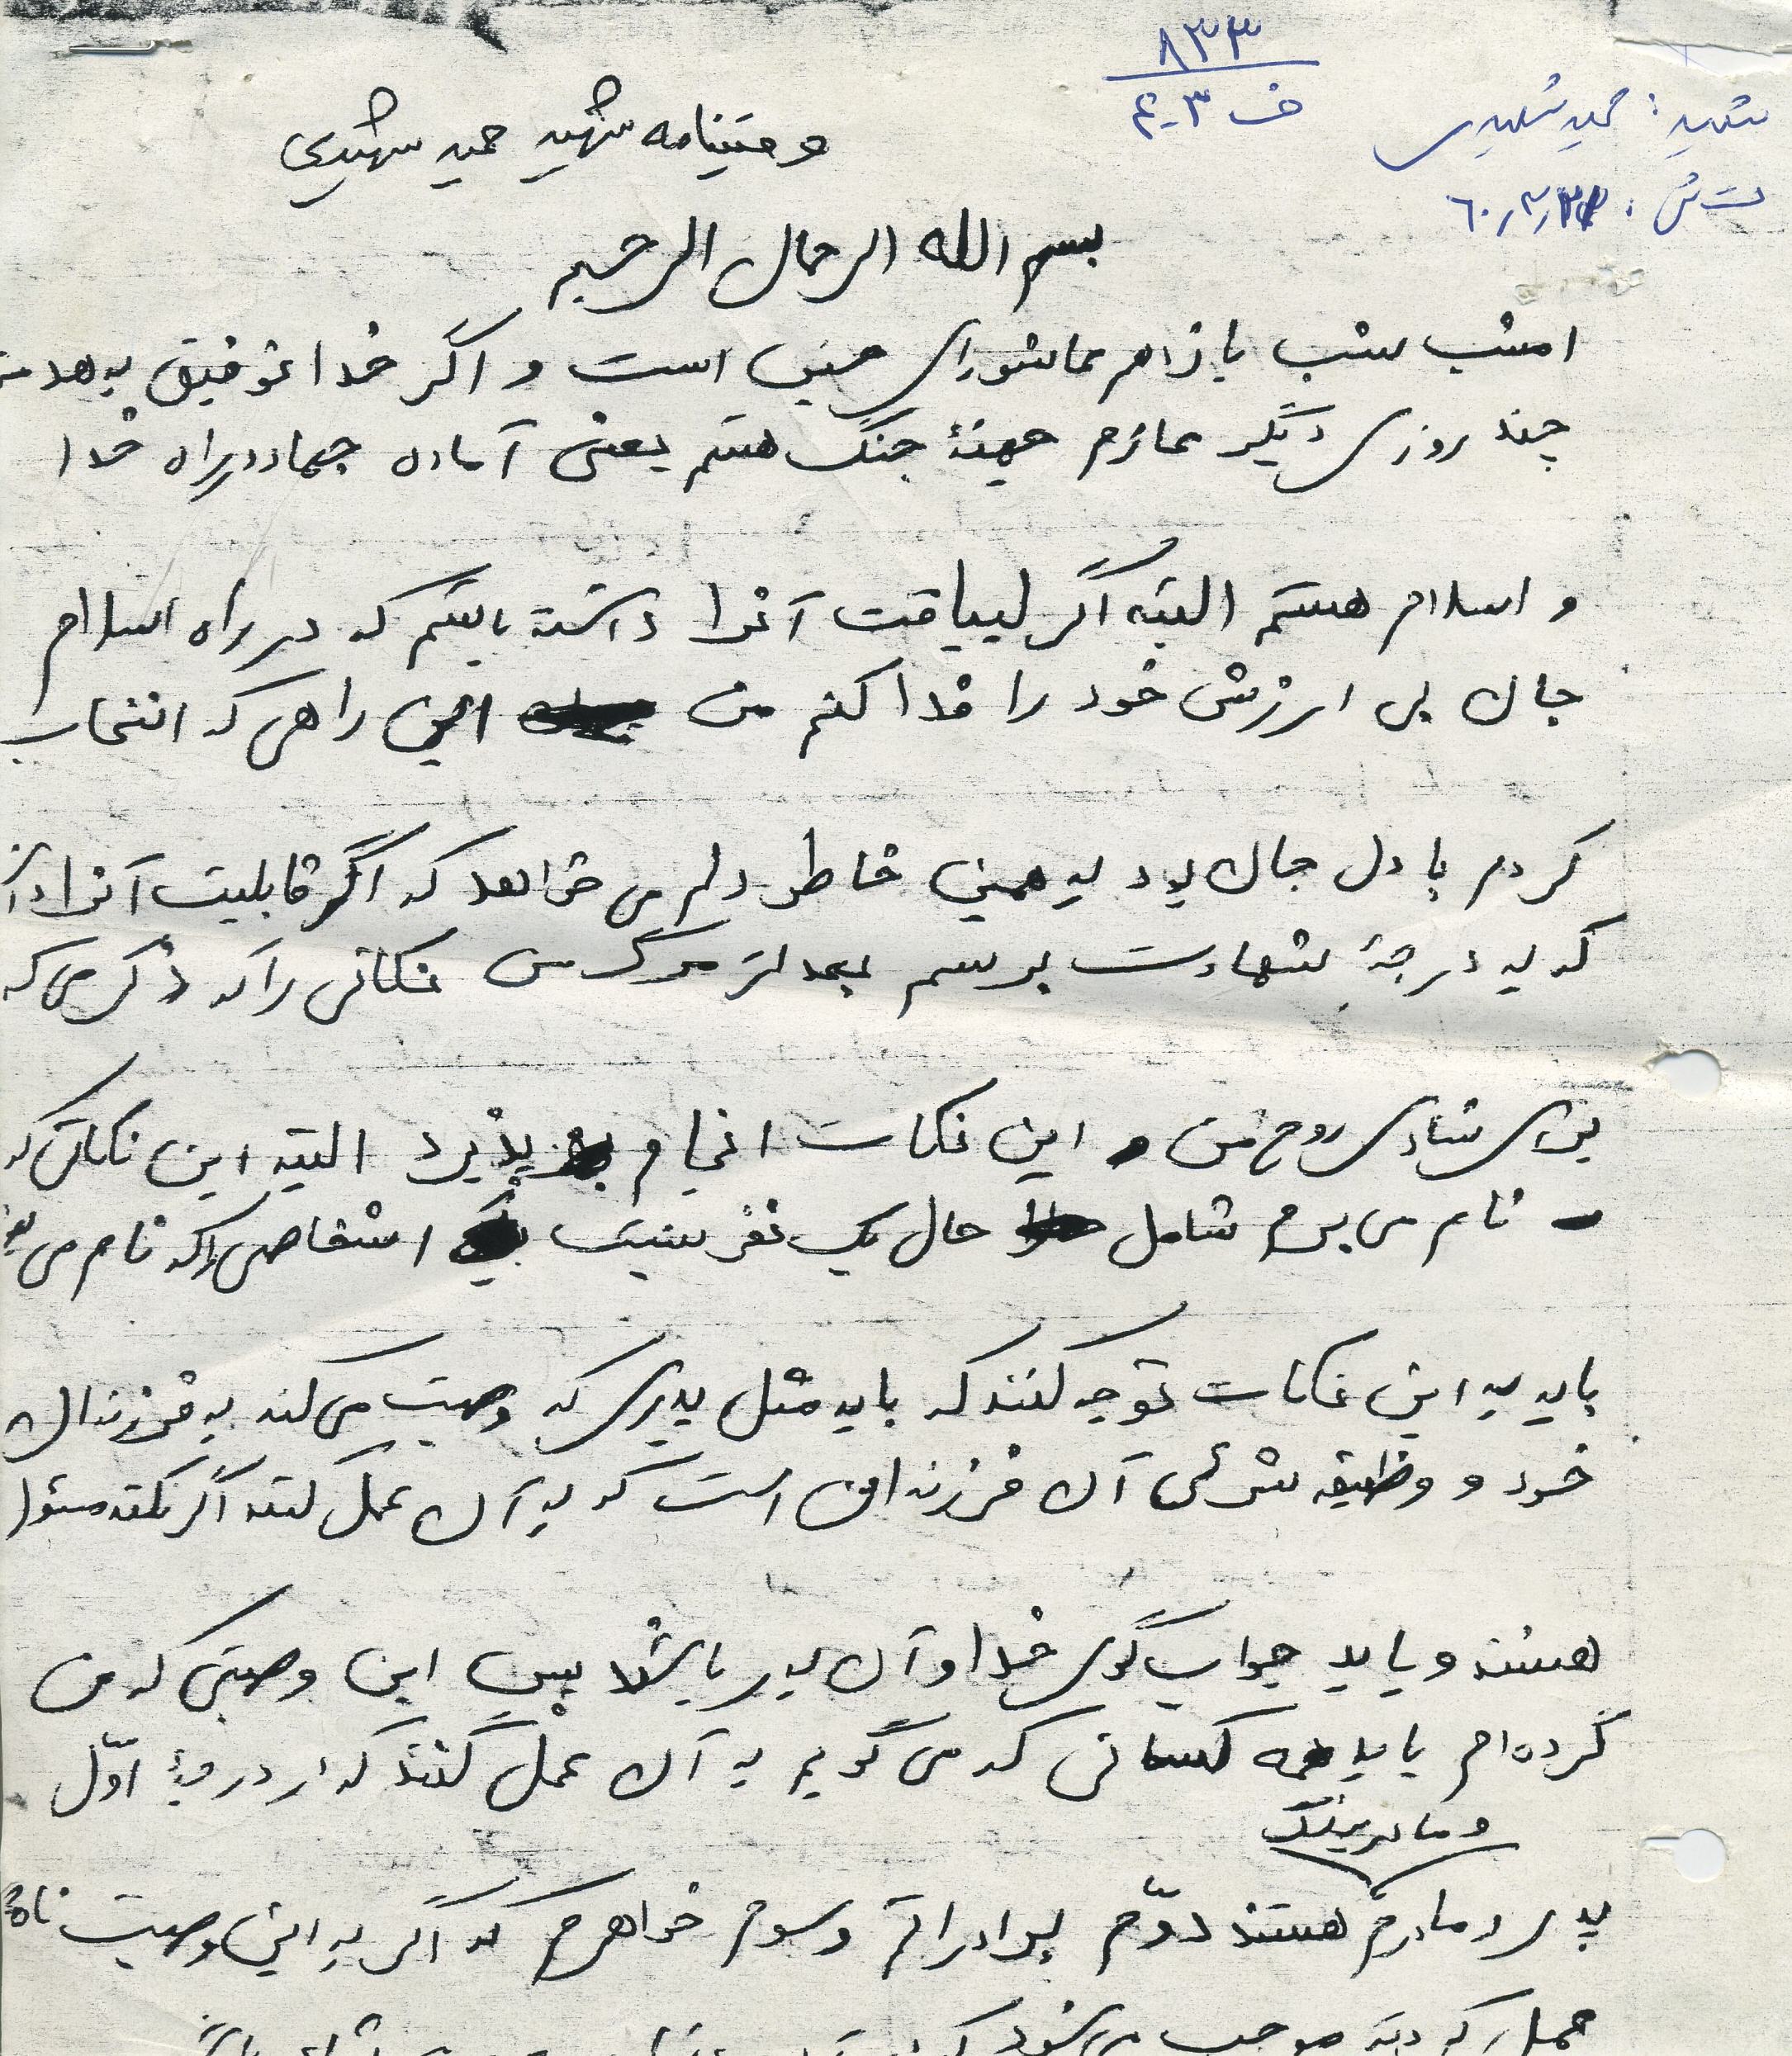 ۸۳۳
ف ۴۰۳
شهید: حمید شهیدی
ت ش:
وصیتنامه شهید حمید شهیدی
بسم الله الرحمان الرحیم
امشب شب یازدهم عاشورای حسینی است و اگر خدا توفیق بدهد
چند روزی دیگر عازم جبههٔ جنگ هستم یعنی آماده جهاد در راه خدا
و اسلام هستم البته اگر لیاقت آنرا داشته باشم که در راه اسلام
جان بی ارزش خود را فدا کنم من این راهی که انتخاب
کردم با دل جان بود به همین خاطر دلم می خواهد که اگر قابلیت آنرا
که به درجهٔ شهادت برسم بعد از مرگ من نکاتی را که ذکر می که
برای شادی روح من و این نکات انجام پذیرد البته این نکاتی که
نام می برم شامل حال یک نفر نیست اشخاصی را که نام می
باید به این نکات توجه کنند که باید مثل پدری که وصیت می کند به فرزندان
خود و وظیفه شرعی آن فرزندان است که به آن عمل کنند اگر نکنند مسئول
هستند و باید جواب گوی خدا و آن پدر باشند پس این وصیتی که من
کرده‌ام باید همه کسانی که می گویم به آن عمل کنند که در درجهٔ اوّل
پدر و مادرم هستند دوّم برادرانم و سوم خواهرم که اگر به این وصیت نامهٔ
عمل کردند موجب می شود که